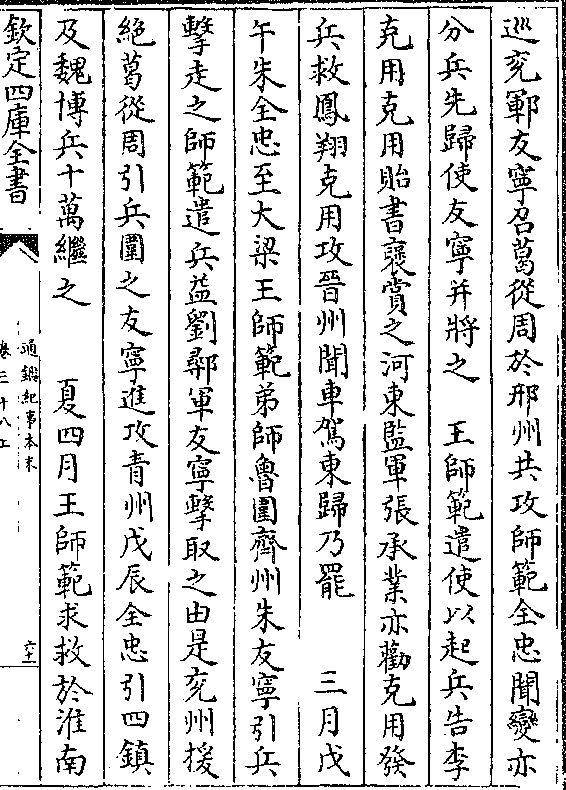 巡兖鄆友寧召葛從周於邢州共攻師範全忠聞變亦
分兵先歸使友寧并將之　王師範遣使以起兵告李
克用克用貽書褒賞之河東監軍張承業亦勸克用發
兵救鳳翔克用攻晉州聞車駕東歸乃罷　三月戊
午朱全忠至大梁王師範弟師魯圍齊州朱友寧引兵
擊走之師範遣兵益劉鄩軍友寧擊取之由是兖州援
絕葛從周引兵圍之友寧進攻青州戊辰全忠引四鎮
及魏博兵十萬繼之　夏四月王師範求救於淮南
欽定四庫全書
通鑑紀事本末
卷三十八上